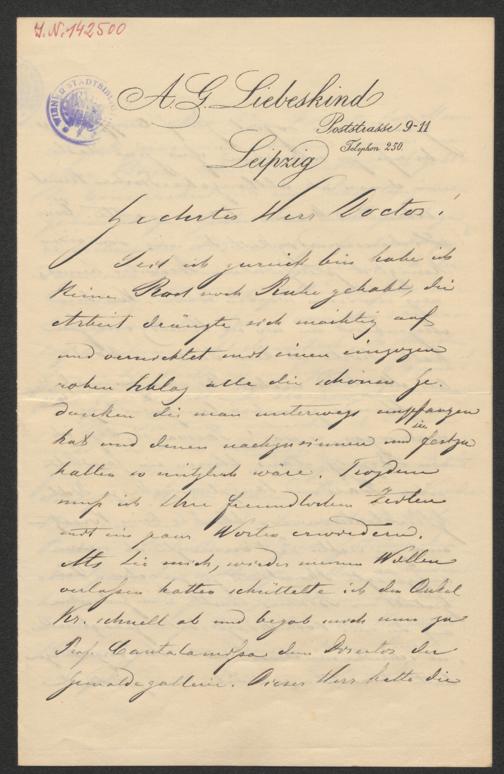 J.N. 142500
A. G. Liebeskind
Poststrasse 9-11
Leipzig
Telephon 250.
Geehrter Herr Doctor!
Seit ich zurück bin habe ich
keine Rast noch Ruhe gehabt, die
Arbeit drängte sich mächtig auf
und vernichtet mit einem einzigen
rohen Schlag alle die schönen Ge-
danken die man unterwegs empfangen
hat und denen nachzusinnen und sie festzu
halten so nützlich wäre. Trotzdem
muß ich Ihre freundlichen Zeilen
mit ein paar Worten erwiedern.
Als Sie mich, wieder meinen Willen
verlassen hatten schüttelte ich den Onkel
Kr. schnell ab und begab mich nun zu
Prof. Cantalamessa dem Director der
Gemäldegallerie. Dieser Herr hatte die